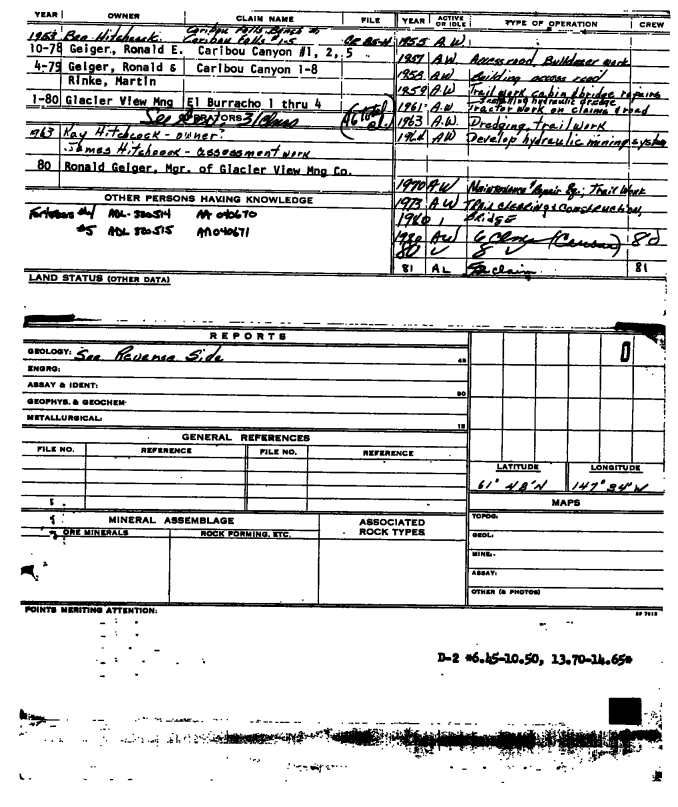 YEAR OWNER CLAIM NAME FILE YEAR ACTIVE OR IDLE TYPE OF OPERATION CREW
Caribou Falls Bench #1
1953 Ben Hitchcock Caribou Falls #1-5 1955 A.W.
10-78 Geiger, Ronald E. Caribou Canyon #1, 2, 5
1957 A.W. Access road, Bulldozer work
4-79 Geiger, Ronald & Caribou Canyon 1-8
1958 A.W. Building access road
Rinke, Martin
1959 A.W. Trail work cabin & bridge repairs
Installing hydraulic dredge
1-80 Glacier View Mng El Burracho 1 thru 4
1961 A.W Tractor work on claims & road
OPERATORS
1963 A.W. Dredging, trail work
1963 Kay Hitchcock - owner
1964 AW Develop hydraulic mining system
James Hitchcock - assessment work
80 Ronald Geiger, Mgr. of Glacier View Mng Co.
1970 AW Maintenance & Repair Eq; Trail Work
OTHER PERSONS HAVING KNOWLEDGE
1973 AW Trail clearing & construction,
#4 ADL 320514 AA 040670
1980 Bridge
#5 ADL 320515 AA 040671
1980 AW 6 80
80 ✓ 8 ✓
81 AL claim 81
LAND STATUS (OTHER DATA)
REPORTS
0
GEOLOGY: See Reverse Side 45
ENGRG:
ASSAY & IDENT: 30
GEOPHYS. & GEOCHEM.
METALLURGICAL: 15
GENERAL REFERENCES
FILE NO. REFERENCE FILE NO. REFERENCE
LATITUDE LONGITUDE
61° 48'N 147° 34'W
MAPS
MINERAL ASSEMBLAGE ASSOCIATED ROCK TYPES
ORE MINERALS ROCK FORMING, ETC.
TOPOG.
GEOL:
MINE:
ASSAY:
OTHER (& PHOTOS)
POINTS MERITING ATTENTION:
D-2 *6.45-10.50, 13.70-14.65*